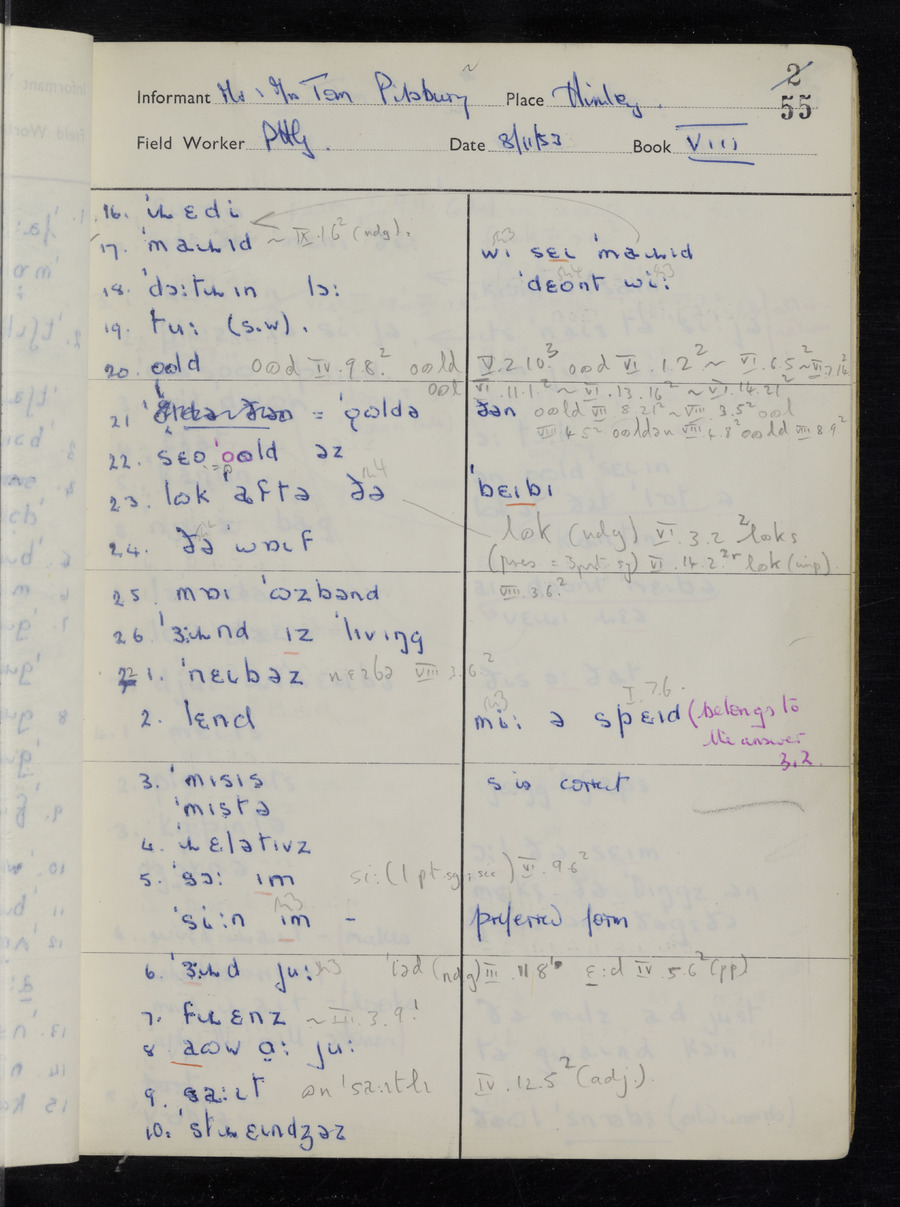 2
55
Informant Mr & Mrs Tom Pilsbury Place Himley.
Field Worker PHG. Date 8/11/53 Book VIII
16. ˈɹɛdi
17. ˈmaɹɪd ~ IX.16² (ndg). wɪ sɛɪ ˈmaɹɪd
18. ˈdɔːtɹ ɪn lɔː ˈdɛont wiː
19. tuː (s.w).
20. ɷəld ɷəd IV.9.8² ɷəld V.2.10³ ɷəd VI.1.2² ~ VI.6.5² ~ VII.7.16²
VI.11.1² ~ VI.13.16² ~ VI.14.21²
21 = ˈɷəldə ðən ɷəld VII 8.21² ~ VIII.3.5² ɷəl
VIII 4.5² ɷəldən VIII 4.8² ɷəld VIII 8.9²
22. sɛo ˈɷəld əz
23. lɷk ˈaftə ðə ˈbɛɪbɪ
24. ðə wɒɪf lɷk (ndg) VI.3.2² lɷks
(pres = 3prt sg) VI.14.2² lɷk (imp)
25. mɒɪ ˈɷzbənd VIII.3.6²
26. ˈɜːɹnd ɪz ˈlivɪŋg
1. ˈnɛɪbəz nɛɪbə VIII 3.6²
2. lɛnd miː ə spɛɪd I.7.6. (belongs to
the answer
3.2.
3. ˈmɪsɪs s is correct
ˈmɪstə
4. ˈɹɛlətɪvz
5. ˈsɔː ɪm siː (1 pt.sg; see) VI.9.6²
ˈsiːn ɪm – preferred form
6. ˈɜːɹd juː ˈɪəd (ndg) III.11.8¹ ɛːd IV.5.6² (pp)
7. fɹɛnz ~ III.3.9¹
8. aɷw ɑː juː
9. saːɹt ɷnˈsaːɹtlɪ IV.12.5² (adj.)
10. ˈstɹɛɪndʒəz